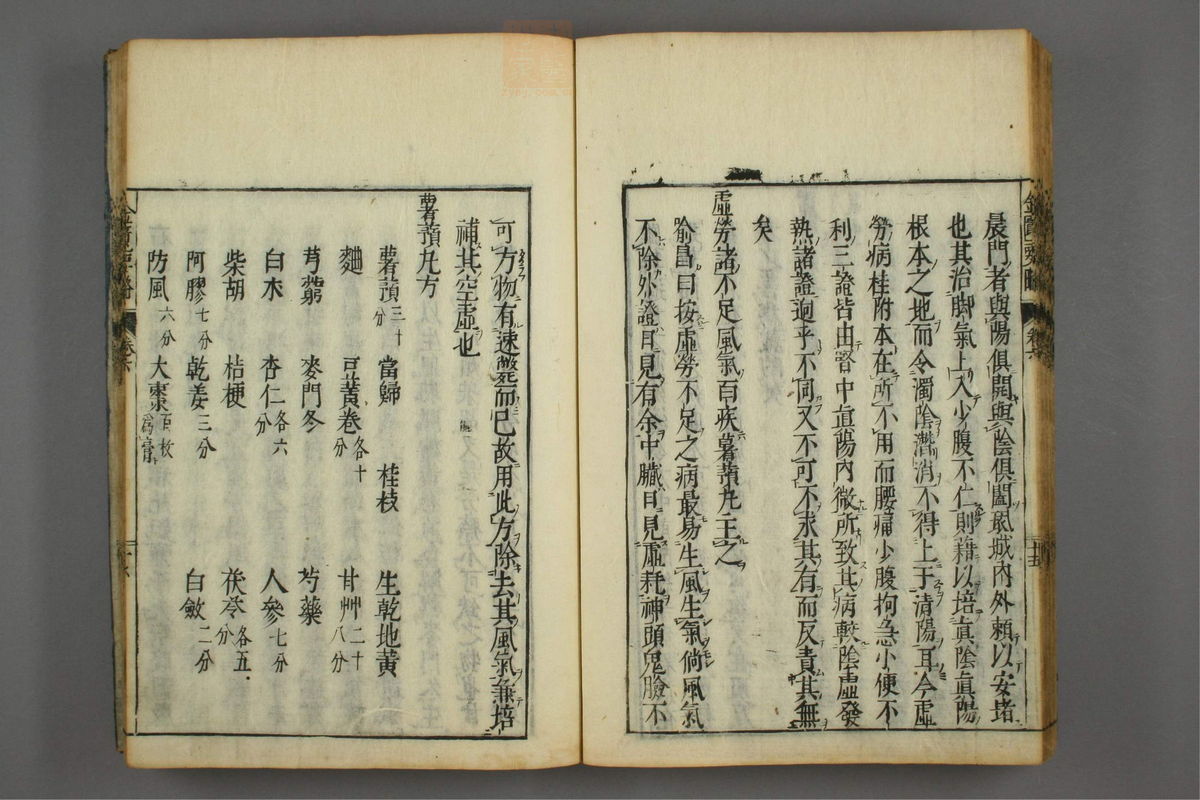 晨門者與陽俱開與陰俱闔嚴城內外賴以安堵
也其治脚氣上入少腹不仁則藉以培真陰真陽
根本之地而令濁陰潛消不得上于清陽耳今虛
勞病桂附本在所不用而腰痛少腹拘急小便不
利三證皆由腎中真陽內微所致其病較陰虛發
熱諸證迥乎不同又不可不求其有而反責其無
矣
虛勞諸不足風氣百疾薯蕷丸主之
喻昌曰按虛勞不足之病最易生風生氣倘風氣
不除外證日見有余中臟日見虛耗神頭鬼臉不
可方物有速斃而已故用此方除去其風氣兼培
補其空虛也
薯蕷丸方
薯蕷三十分 當歸 桂枝 生乾地黃
麯 豆黃卷各十分 甘艸二十八分
芎藭 麥門冬 芍藥
白朮 杏仁各六分 人參七分
柴胡 桔梗 茯苓各五分
阿膠七分 乾姜三分 白斂二分
防風六分 大棗百枚為膏
金匱要略 卷六